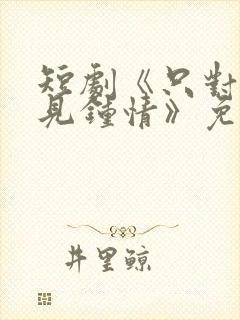 短劇《只對
見鍾情》免
井里鯨